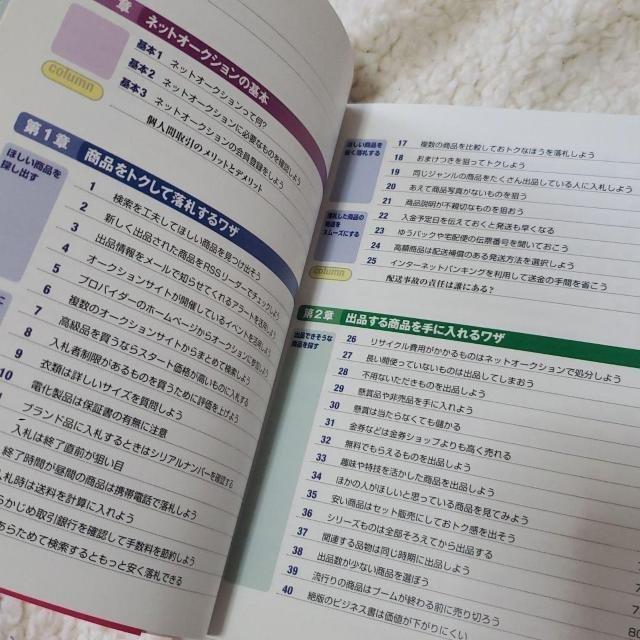 章 ネットオークションの基本
基本1 ネットオークションって何?
基本2 ネットオークションに必要なものを確認しよう
基本3 ネットオークションの会員登録をしよう
column 個人間取引のメリットとデメリット
第1章 商品をトクして落札するワザ
ほしい商品を
探し出す
1 検索を工夫してほしい商品を見つけ出そう
2 新しく出品された商品をRSSリーダーでチェックしよう
3 出品情報をメールで知らせてくれるアラートを活用しよう
4 オークションサイトが開催しているイベントを活用しよう
5 プロバイダーのホームページからオークションに参加しよう
6 複数のオークションサイトからまとめて検索しよう
7 高級品を買うならスタート価格が高いものに入札する
8 入札者制限があるものを買うために評価を上げよう
9 衣類は詳しいサイズを質問しよう
10 電化製品は保証書の有無に注意
ブランド品に入札するときはシリアルナンバーを確認する
入札は終了直前が狙い目
終了時間が昼間の商品は携帯電話で落札しよう
札時は送料を計算に入れよう
らかじめ取引銀行を確認して手数料を節約しよう
あらためて検索するともっと安く落札できる
ほしい商品を
安く落札する
17 複数の商品を比較しておトクなほうを落札しよう
18 おまけつきを狙ってトクしよう
19 同じジャンルの商品をたくさん出品している人に入札しよう
20 あえて商品写真がないものを狙う
21 商品説明が不親切なものを狙おう
落札した商品の
発送を
スムーズにする
22 入金予定日を伝えておくと発送も早くなる
23 ゆうパックや宅配便の伝票番号を聞いておこう
24 高額商品は配送補償のある発送方法を選択しよう
25 インターネットバンキングを利用して送金の手間を省こう
column 配送事故の責任は誰にある?
第2章 出品する商品を手に入れるワザ
出品できそうな
商品を探す
26 リサイクル費用がかかるものはネットオークションで処分しよう
27 長い間使っていないものは出品してしまおう
28 不用ないただきものを出品しよう
29 懸賞品や非売品を手に入れよう
30 懸賞は当たらなくても儲かる
31 金券などは金券ショップよりも高く売れる
32 無料でもらえるものを出品しよう
33 趣味や特技を活かした商品を出品しよう
34 ほかの人がほしいと思っている商品を見てみよう
35 安い商品はセット販売にしておトク感を出そう
36 シリーズものは全部そろえてから出品する
37 関連する品物は同じ時期に出品しよう
38 出品数が少ない商品を選ぼう
39 流行りの商品はブームが終わる前に売り切ろう
40 絶版のビジネス書は価値が下がりにくい